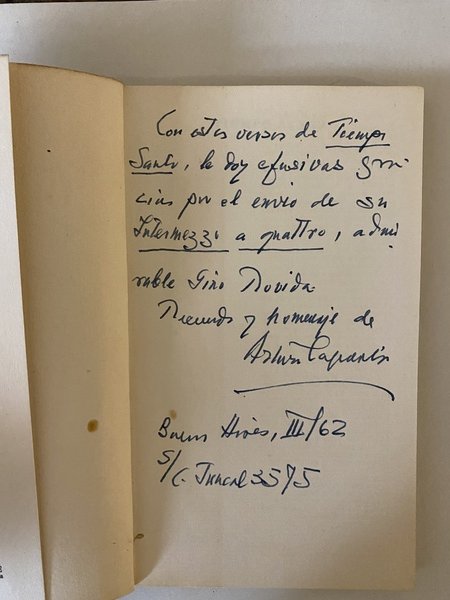 Con estos versos de Tiempo
Santo, le doy efusivas gra-
cias por el envío de su
Intermezzo a quattro, admi
rable Gino Rovida.
Recuerdo y homenaje de
Arturo Capdevila
Buenos Aires, III/62
S/C. Juncal 3575